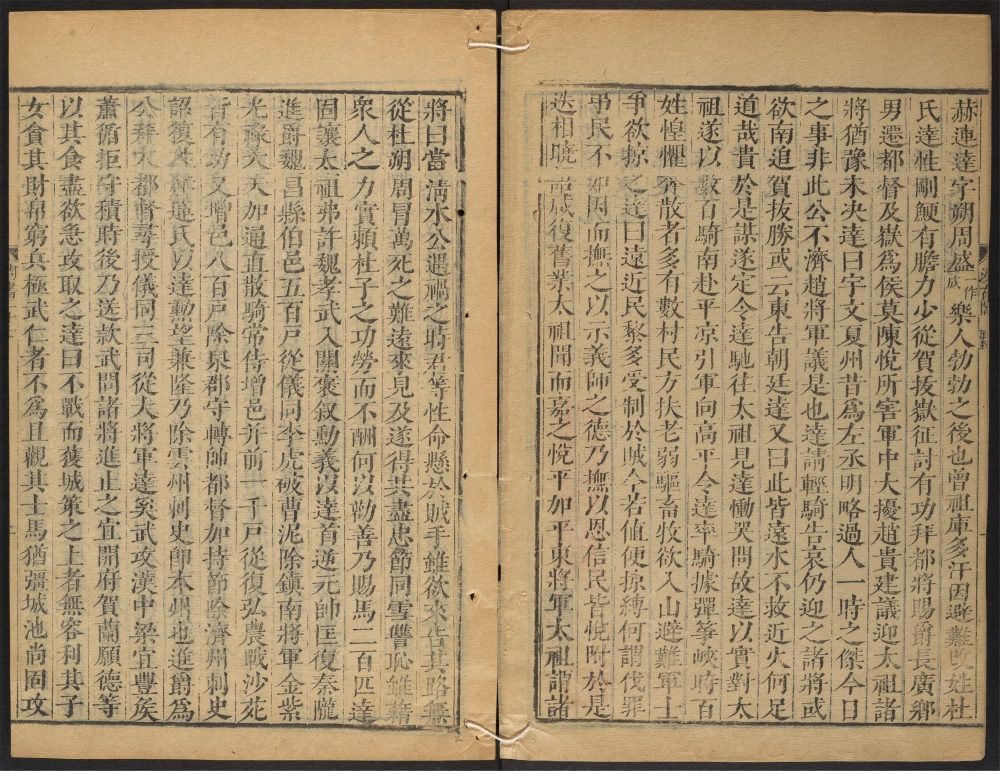 赫連達字朔周盛一作成樂人勃勃之後也曾祖庫多汗因避難改姓杜
氏達性剛鯁有膽力少從賀拔嶽征討有功拜都將賜爵長廣鄉
男遷都督及嶽爲侯莫陳悅所害軍中大擾趙貴建議迎太祖諸
將猶豫未决達曰宇文夏州昔爲左丞明略過人一時之傑今日
之事非此公不濟趙將軍議是也達請輕騎告哀仍迎之諸將或
欲南追賀拔勝或云東告朝廷達又曰此皆遠水不救近火何足
道哉貴於是謀遂定令達馳往太祖見達慟哭問故達以實對太
祖遂以數百騎南赴平凉引軍向高平令達率騎據彈箏峽時百
姓惶懼奔散者多有數村民方扶老弱驅畜牧欲入山避難軍士
爭欲掠之達曰遠近民黎多受制於賊今若值便掠縛何謂伐罪
弔民不如因而撫之以示義師之德乃撫以恩信民皆悅附於是
迭相曉語咸復舊業太祖聞而嘉之悅平加平東將軍太祖謂諸
將曰當清水公遇禍之時君等性命懸於賊手雖欲來告其路無
從杜朔周冒萬死之難遠來見及遂得共盡忠節同雪讐恥雖藉
衆人之力實賴杜子之功勞而不酬何以勸善乃賜馬二百匹達
固讓太祖弗許魏孝武入關褒叙勳義以達首逆元帥匡復秦隴
進爵魏昌縣伯邑五百戸從儀同李虎破曹泥除鎭南將軍金紫
光祿大夫加通直散騎常侍增邑并前一千戸從復弘農戰沙苑
皆有功又增邑八百戸除泉郡守轉帥都督加持節除濟州刺史
詔復姓赫連氏以達勳望兼隆乃除雲州刺史卽本州也進爵爲
公拜大都督尋授儀同三司從大將軍達奚武攻漢中梁宜豐矦
蕭循拒守積時後乃送款武問諸將進止之宜開府賀蘭願德等
以其食盡欲急攻取之達曰不戰而獲城策之上者無容利其子
女貪其財帛窮兵極武仁者不爲且觀其士馬猶彊城池尚固攻